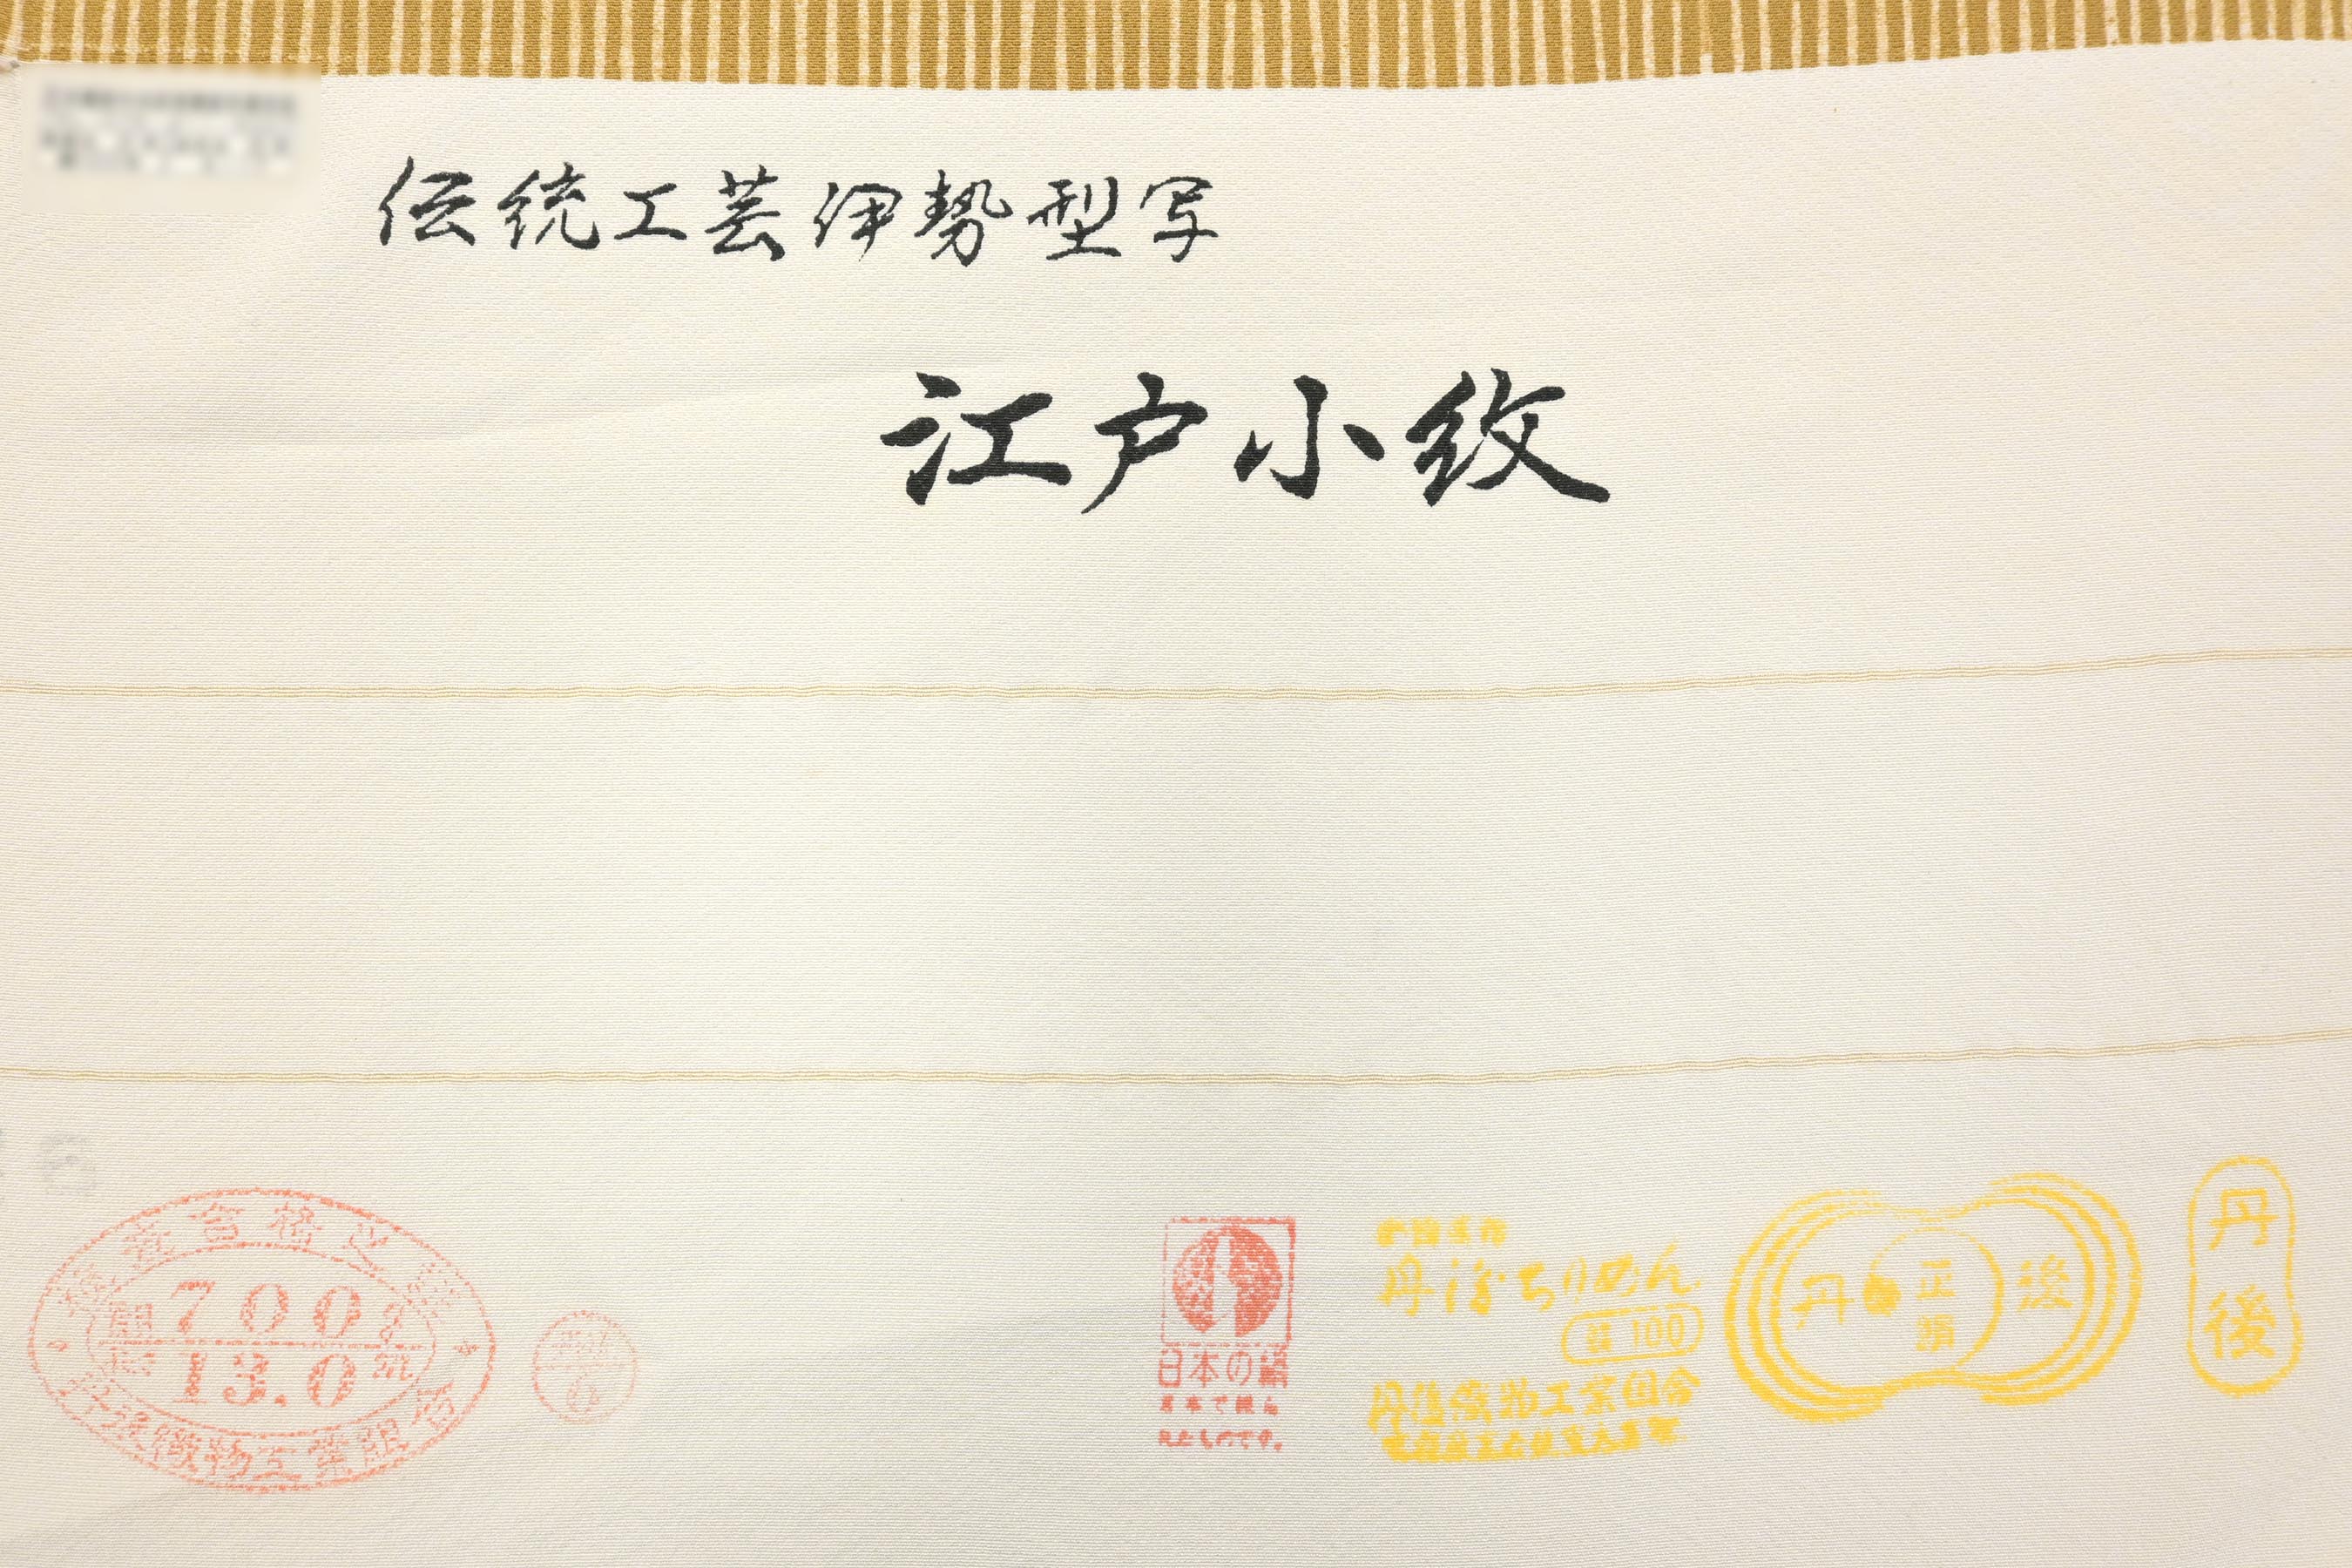 伝統工芸伊勢型写
江戸小紋
検査合格之証
700
13.0
丹後織物工業組合
日本の絹
日本で織っ
たものです。
丹後ちりめん
絹100
丹後織物工業組合
丹 正絹 後
丹後